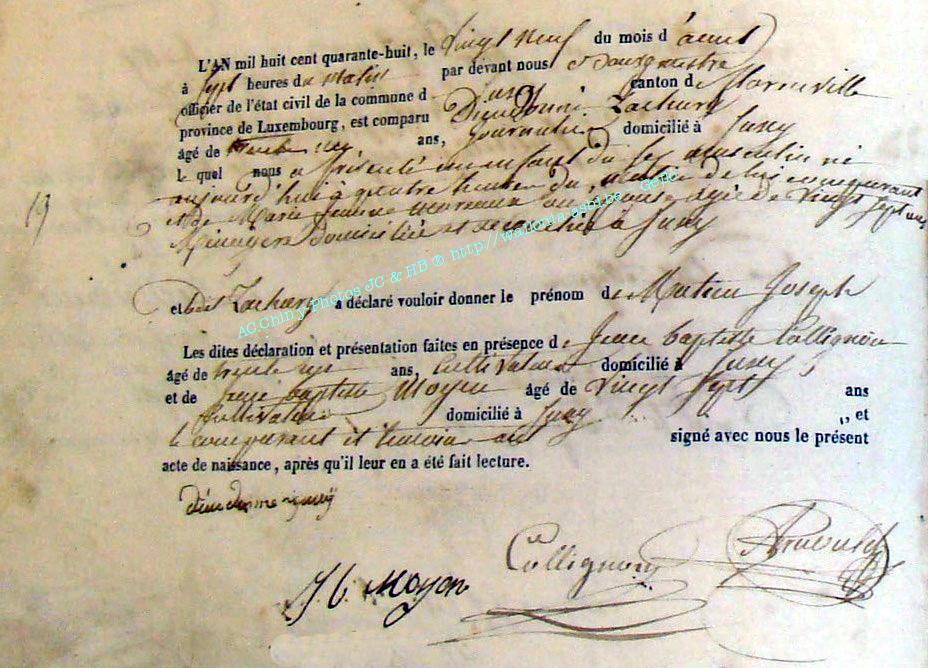 L'AN mil huit cent quarante-huit, le vingt neuf du mois d'aout
à sept heures du matin par devant nous Bourgmestre
officier de l'état civil de la commune d Jusny canton de florenville
province de Luxembourg, est comparu Zachary
âgé de trente ans, domicilié à Jusny
le quel nous a présenté un enfant du sexe masculin né
aujourd'hui à quatre heures du matin de lui comparant
et de Marie Jeanne son épouse agée de vingt sept ans
Ménagère domiciliée et à Jusny
19
et dit Zachary a déclaré vouloir donner le prénom de Joseph
Les dites déclaration et présentation faites en présence de Jean baptiste Collignon
âgé de trente ans, cultivateur domicilié à Jusny
et de Jean baptiste Moyen âgé de vingt sept ans
cultivateur domicilié à Jusny , et
le comparant et témoins ont signé avec nous le présent
acte de naissance, après qu'il leur en a été fait lecture.
Collignon
J. b. Moyen
AC Chiny Photos JC & HB ® http://wallonia-asbl.be - Genil